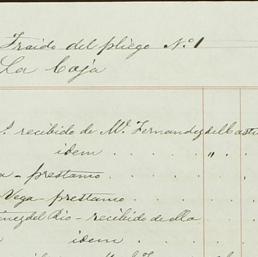 Traido del pliego Nº 1
La Caja
recibido de M. Fernandez del Casti
idem . . . . "
a - prestamo . . . .
Vega - prestamo . . . .
inez del Rio - recibido de ella
idem . . . .